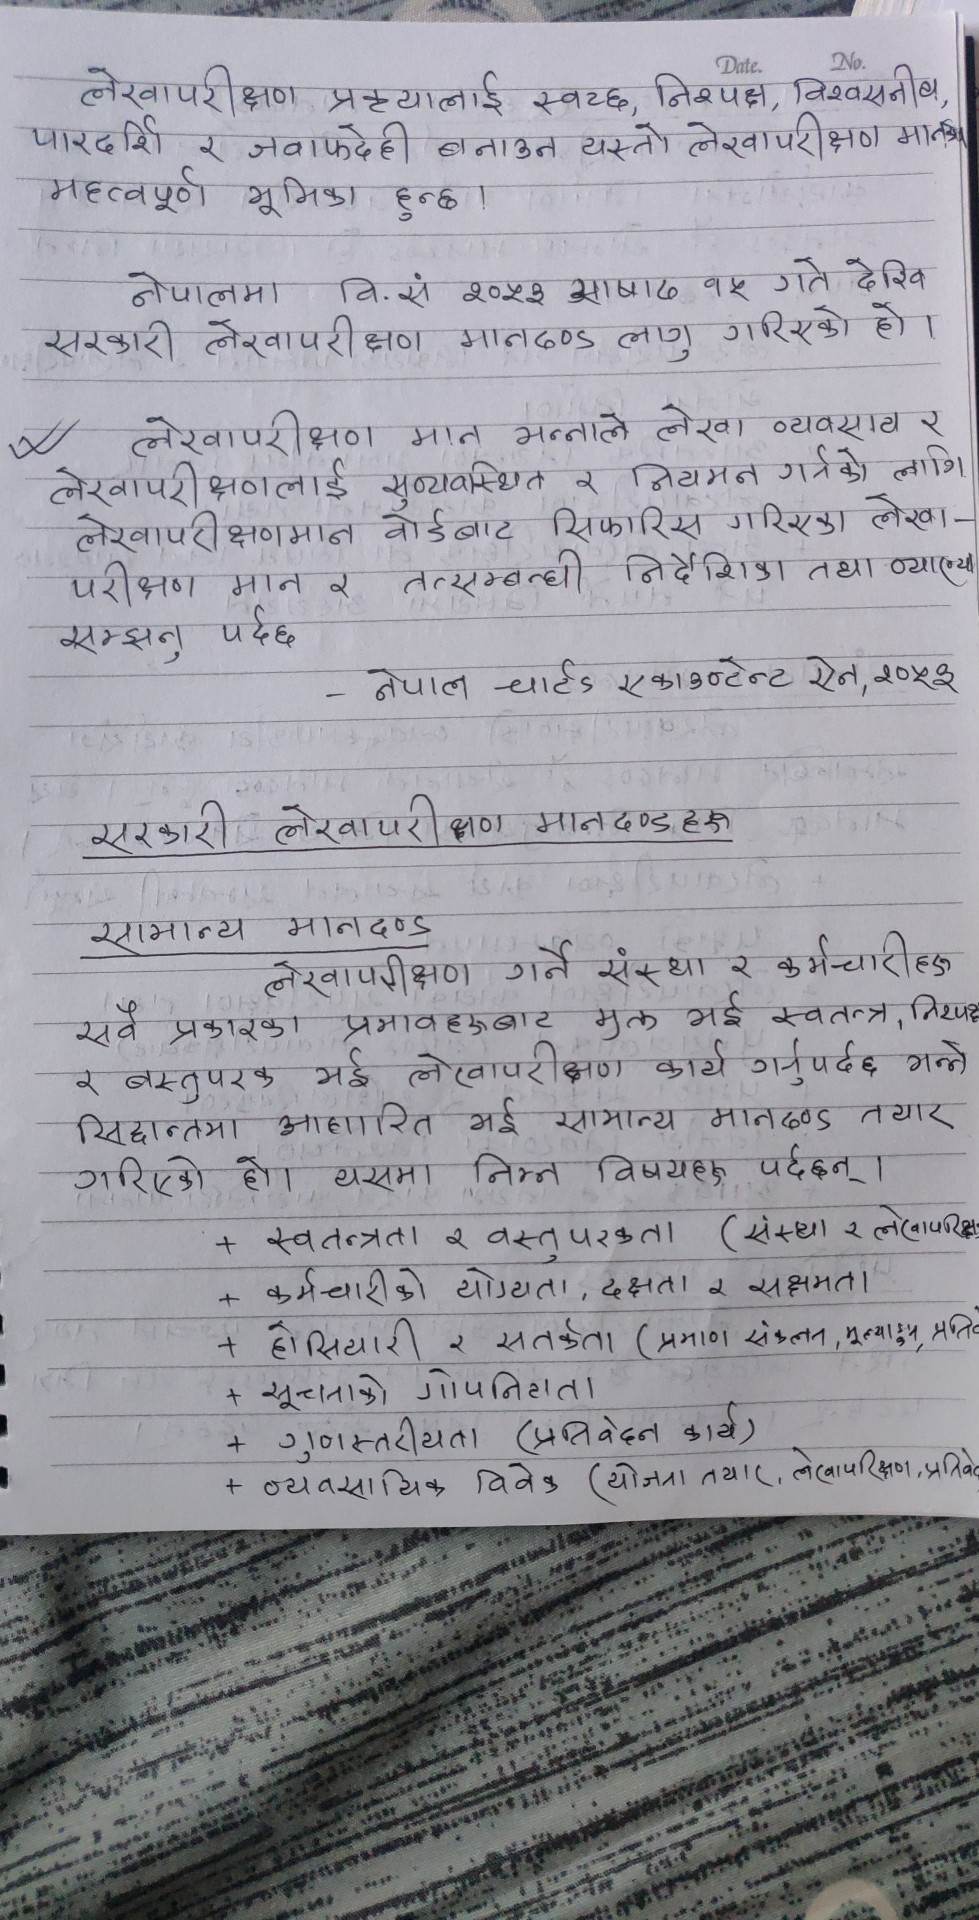 Date. No.
लेखापरीक्षण प्रकृयालाई स्वच्छ, निश्पक्ष, विश्वसनीय,
पारदर्शि र जवाफदेही बनाउन यस्तो लेखापरीक्षण
महत्वपूर्ण भूमिका हुन्छ।
नेपालमा वि.सं २०५३ आषाढ १५ गते देखि
सरकारी लेखापरीक्षण मानदण्ड लागु गरिएको हो।
लेखापरीक्षण मान भन्नाले लेखा व्यवसाय र
लेखापरीक्षणलाई सुव्यवस्थित र नियमन गर्नको लागि
लेखापरीक्षणमान वोर्डबाट सिफारिस गरिएका लेखा-
परीक्षण मान र तत्सम्बन्धी निर्देशिका तथा व्याख्या
सम्झनु पर्दछ
- नेपाल चार्टड एकाउण्टेन्ट ऐन, २०५३
सरकारी लेखापरीक्षण मानदण्डहरू
सामान्य मानदण्ड
लेखापरीक्षण गर्ने संस्था र कर्मचारीहरू
सवै प्रकारका प्रभावहरूबाट मुक्त भई स्वतन्त्र, निश्पक्ष
र बस्तुपरक भई लेखापरीक्षण कार्य गर्नुपर्दछ भन्ने
सिद्दान्तमा आधारित भई सामान्य मानदण्ड तयार
गरिएको हो। यसमा निम्न विषयहरू पर्दछन्।
+ स्वतन्त्रता र वस्तुपरकता (संस्था र लेखापरिक्ष
+ कर्मचारीको योग्यता, दक्षता र सक्षमता
+ होसियारी र सतर्कता (प्रमाण संकलन, मूल्याङ्कन, प्रतिवे
+ सूचनाको गोपनियता
+ गुणस्तरीयता (प्रतिवेदन कार्य)
+ व्यवसायिक विवेक (योजना तयार, लेखापरिक्षण, प्रतिवे